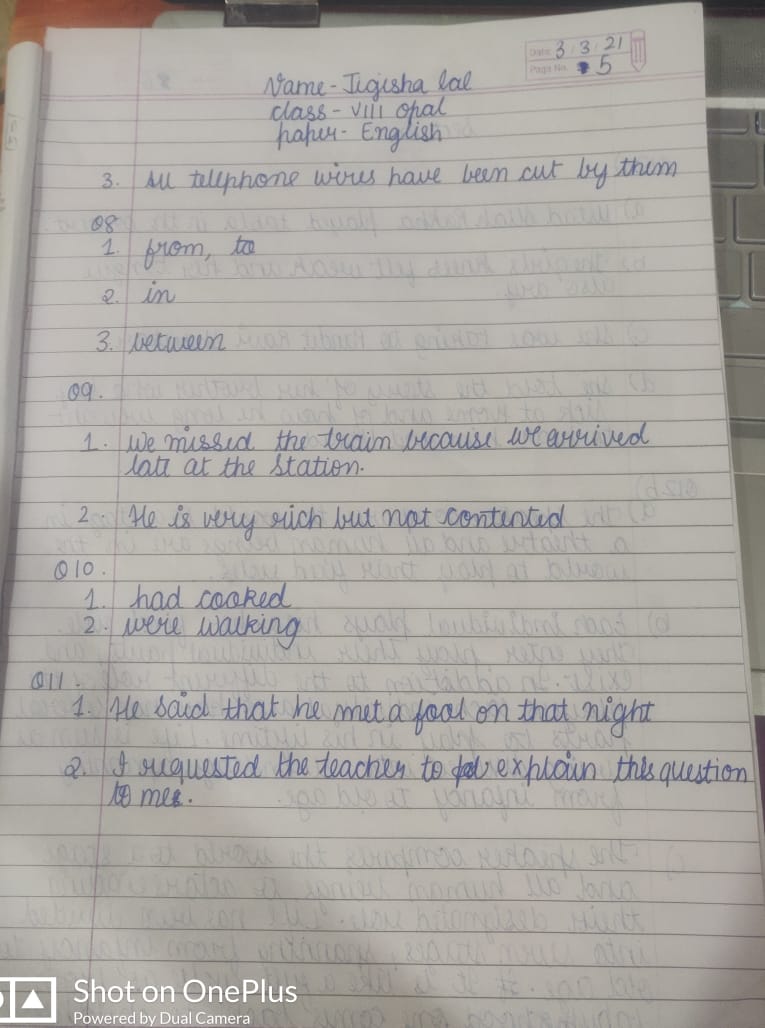 Date 3.3.21
Page No. 5
Name - Jigisha lal
class - VIII opal
paper - English
3. All telephone wires have been cut by them
Q8
1. from, to
2. in
3. between
Q9.
1. We missed the train because we arrived
late at the station.
2. He is very rich but not contented
Q10.
1. had cooked
2. were walking
Q11.
1. He said that he met a fool on that night
2. I requested the teacher to explain this question
to me.
Shot on OnePlus
Powered by Dual Camera